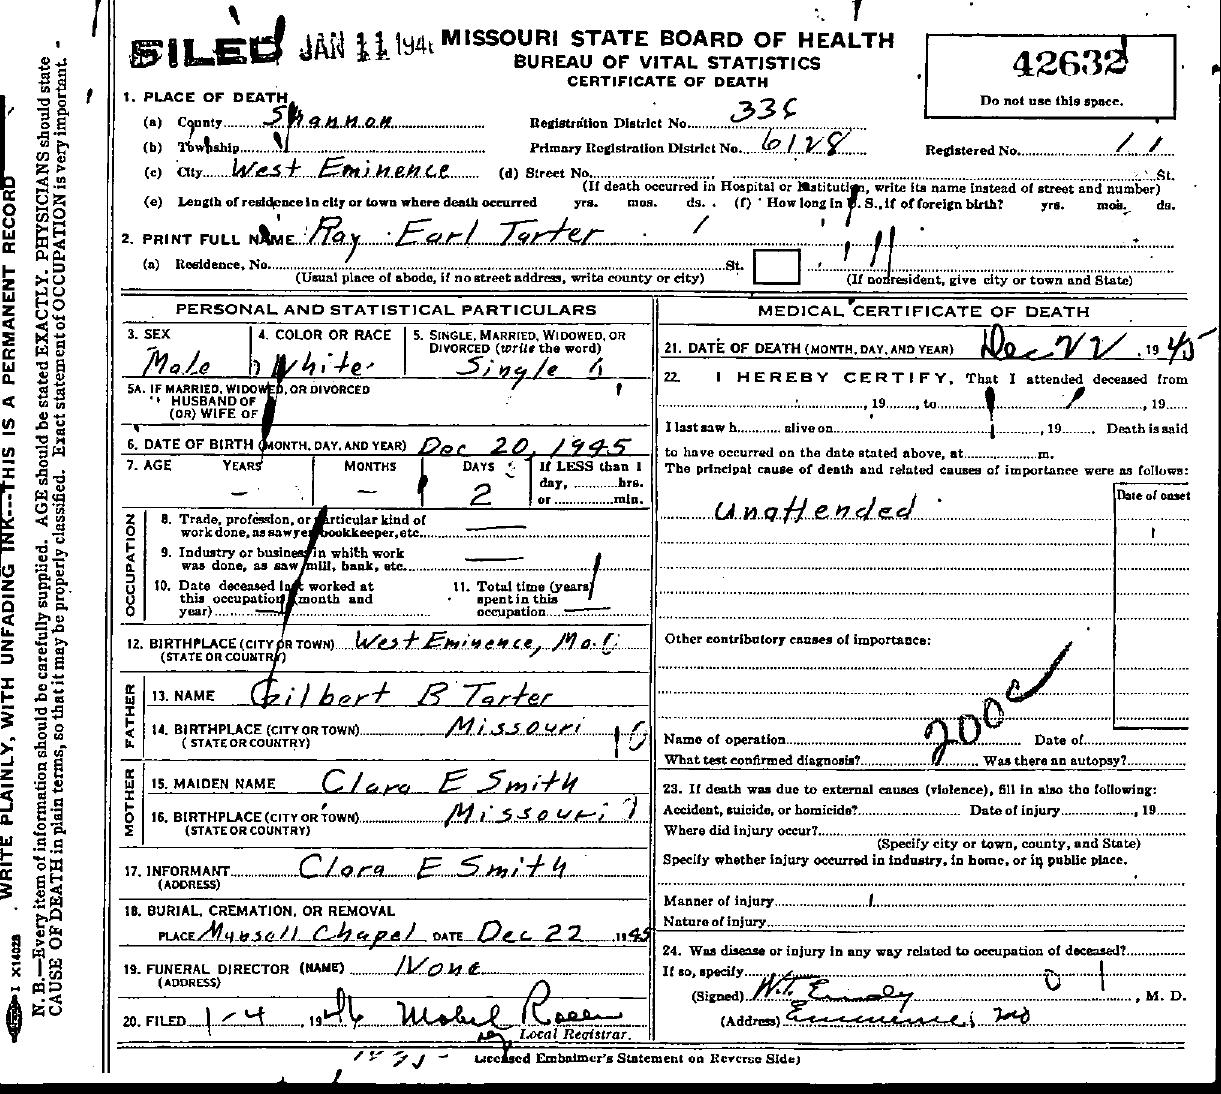 FILED JAN 11 194
MISSOURI STATE BOARD OF HEALTH
BUREAU OF VITAL STATISTICS
CERTIFICATE OF DEATH
42632
Do not use this space.
1. PLACE OF DEATH
(a) County Shannon
Registration District No. 336
(b) Township
Primary Registration District No. 6128
Registered No. 11
(c) City West Eminence (d) Street No. St.
(If death occurred in Hospital or Institution, write its name instead of street and number)
(e) Length of residence in city or town where death occurred yrs. mos. ds. (f) How long in U. S., if of foreign birth? yrs. mos. ds.
2. PRINT FULL NAME Ray Earl Tarter
(a) Residence, No. St.
(Usual place of abode, if no street address, write county or city) (If nonresident, give city or town and State)
PERSONAL AND STATISTICAL PARTICULARS
3. SEX Male
4. COLOR OR RACE White
5. SINGLE, MARRIED, WIDOWED, OR DIVORCED (write the word) Single
5A. IF MARRIED, WIDOWED, OR DIVORCED
HUSBAND OF
(OR) WIFE OF
6. DATE OF BIRTH (MONTH, DAY, AND YEAR) Dec 20, 1945
7. AGE YEARS MONTHS DAYS If LESS than 1
day, hrs.
or min.
– – 2
OCCUPATION
8. Trade, profession, or particular kind of
work done, as sawyer, bookkeeper, etc.
9. Industry or business in which work
was done, as saw mill, bank, etc.
10. Date deceased last worked at
this occupation (month and
year)
11. Total time (years)
spent in this
occupation
12. BIRTHPLACE (CITY OR TOWN) West Eminence, Mo.
(STATE OR COUNTRY)
FATHER
13. NAME Gilbert B Tarter
14. BIRTHPLACE (CITY OR TOWN) Missouri
(STATE OR COUNTRY)
MOTHER
15. MAIDEN NAME Clara E Smith
16. BIRTHPLACE (CITY OR TOWN) Missouri
(STATE OR COUNTRY)
17. INFORMANT Clara E Smith
(ADDRESS)
18. BURIAL, CREMATION, OR REMOVAL
PLACE Munsell Chapel DATE Dec 22, 1945
19. FUNERAL DIRECTOR (NAME) None
(ADDRESS)
20. FILED 1-4, 1946 Mabel
Local Registrar.
MEDICAL CERTIFICATE OF DEATH
21. DATE OF DEATH (MONTH, DAY, AND YEAR) Dec 22, 1945
22. I HEREBY CERTIFY, That I attended deceased from
, 19 , to , 19
I last saw h alive on , 19 Death is said
to have occurred on the date stated above, at m.
The principal cause of death and related causes of importance were as follows:
Date of onset
Unattended
Other contributory causes of importance:
200c
Name of operation Date of
What test confirmed diagnosis? Was there an autopsy?
23. If death was due to external causes (violence), fill in also the following:
Accident, suicide, or homicide? Date of injury , 19
Where did injury occur?
(Specify city or town, county, and State)
Specify whether injury occurred in industry, in home, or in public place.
Manner of injury
Nature of injury
24. Was disease or injury in any way related to occupation of deceased?
If so, specify
(Signed) W.T. , M. D.
(Address) Eminence, Mo
Licensed Embalmer's Statement on Reverse Side)
WRITE PLAINLY, WITH UNFADING INK---THIS IS A PERMANENT RECORD
N. B.—Every item of information should be carefully supplied. AGE should be stated EXACTLY. PHYSICIANS should state
CAUSE OF DEATH in plain terms, so that it may be properly classified. Exact statement of OCCUPATION is very important.
I X14023